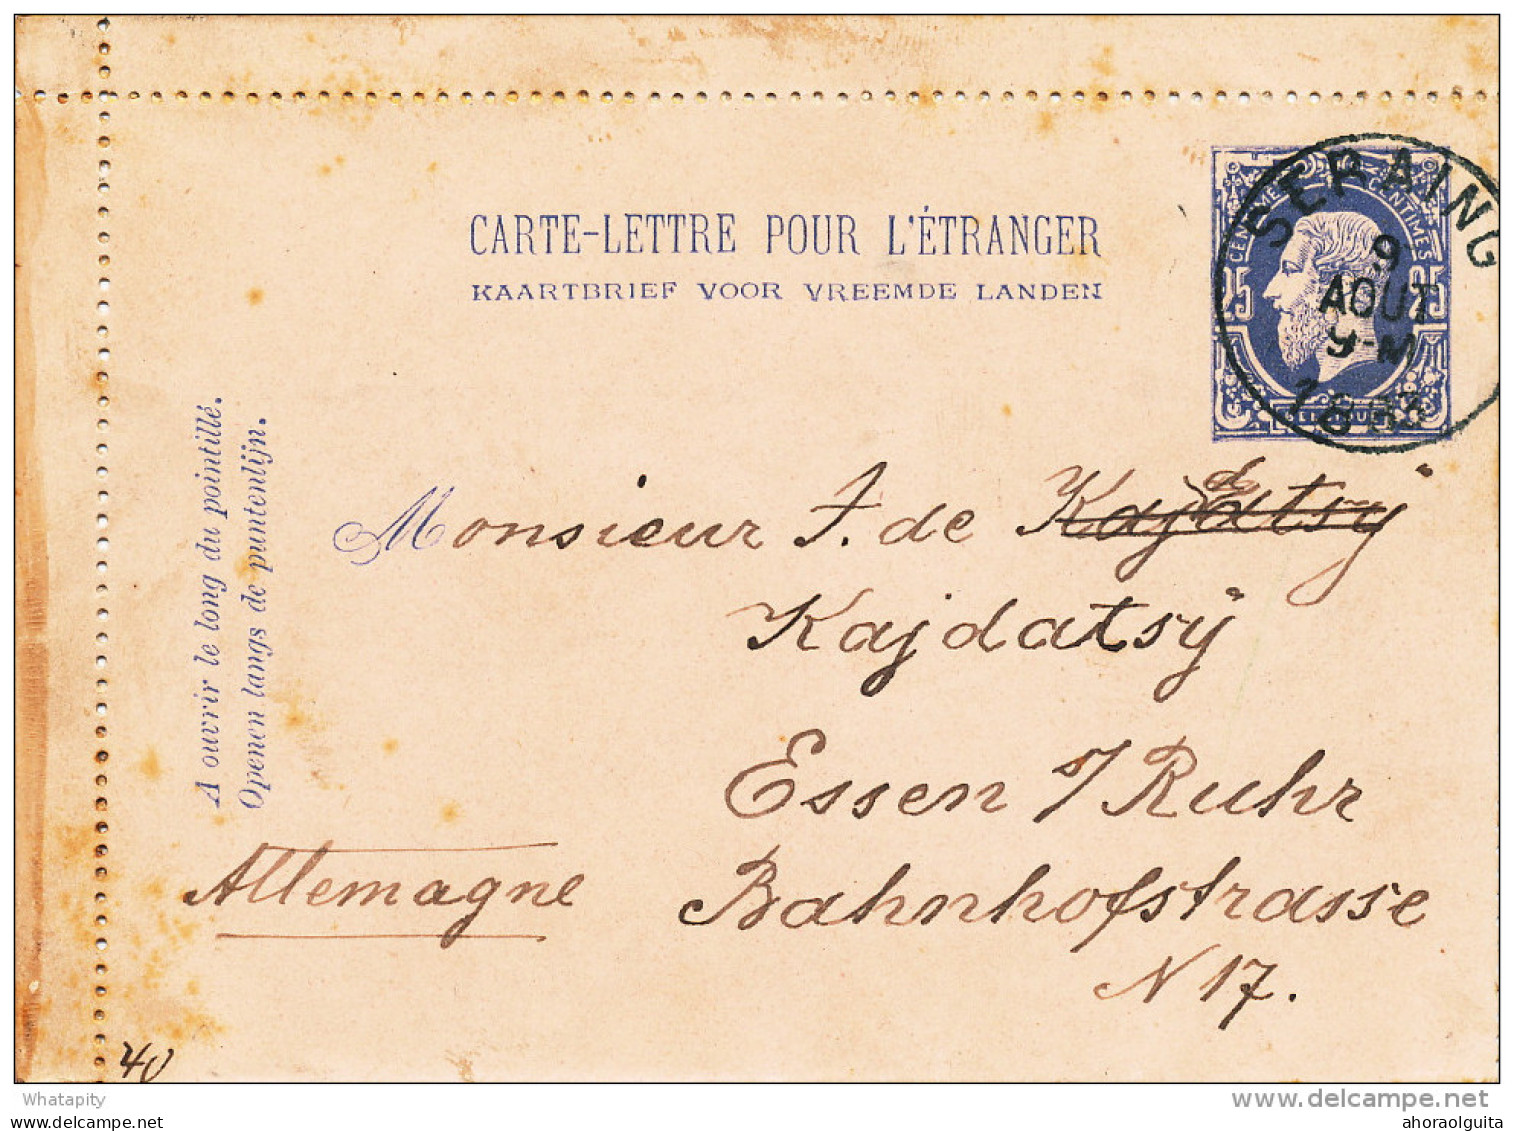 CARTE-LETTRE POUR L'ÉTRANGER
KAARTBRIEF VOOR VREEMDE LANDEN
CENTIMES CENTIMES
25 25
BELGIQUE
SERAING
9
AOUT
9-M
1883
A ouvrir le long du pointillé.
Openen langs de puntenlijn.
Monsieur J. de Kajdatsÿ
Kajdatsÿ
Essen s/Ruhr
Allemagne
Bahnhofstrasse
N 17.
40
Whatapity
www.delcampe.net
whatapity@hotmail.com
ahoraolguita